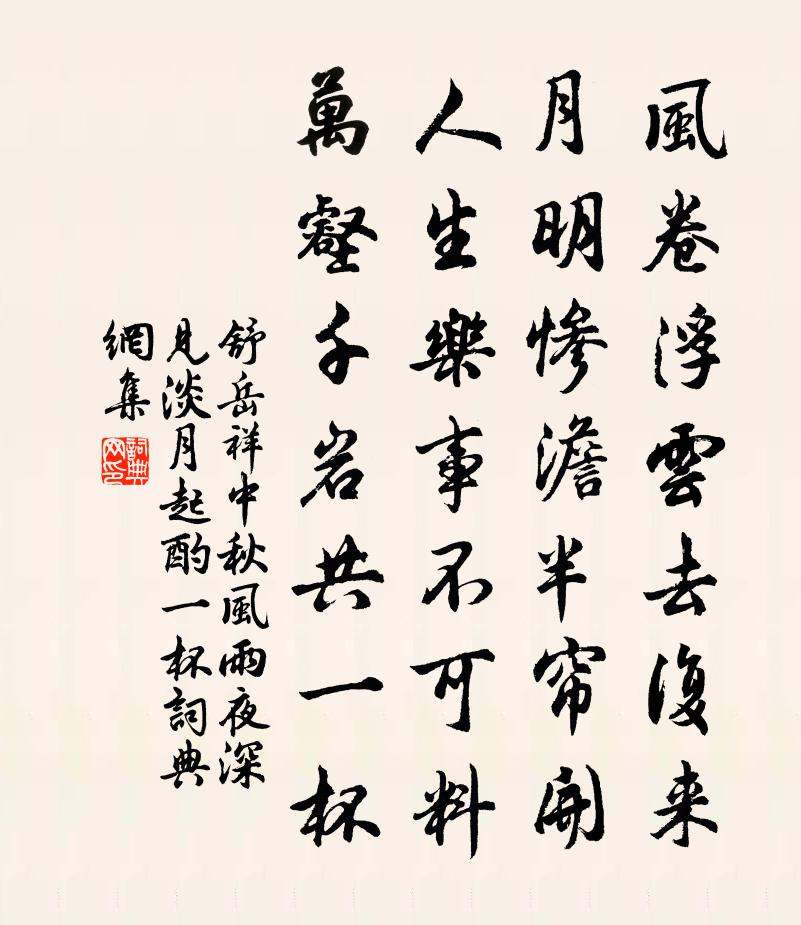 風卷浮雲去復来
月明惨澹半帘開
人生樂事不可料
萬壑千岩共一杯
舒岳祥中秋風雨夜深
見淡月起酌一杯詞典
網集
詞典
网印